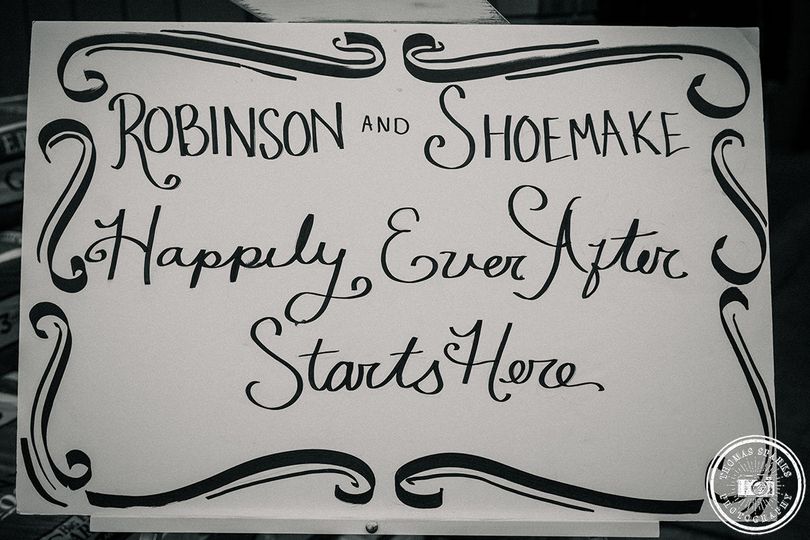 ROBINSON AND SHOEMAKE
Happily Ever After
Starts Here
THOMAS STARKS
PHOTOGRAPHY